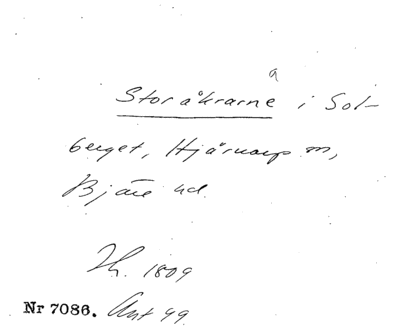 a
Storåkrarne i Sol-
berget, Hjärnarp sn,
Bjäre hd.
Th. 1809
Nr 7086. Ant 99